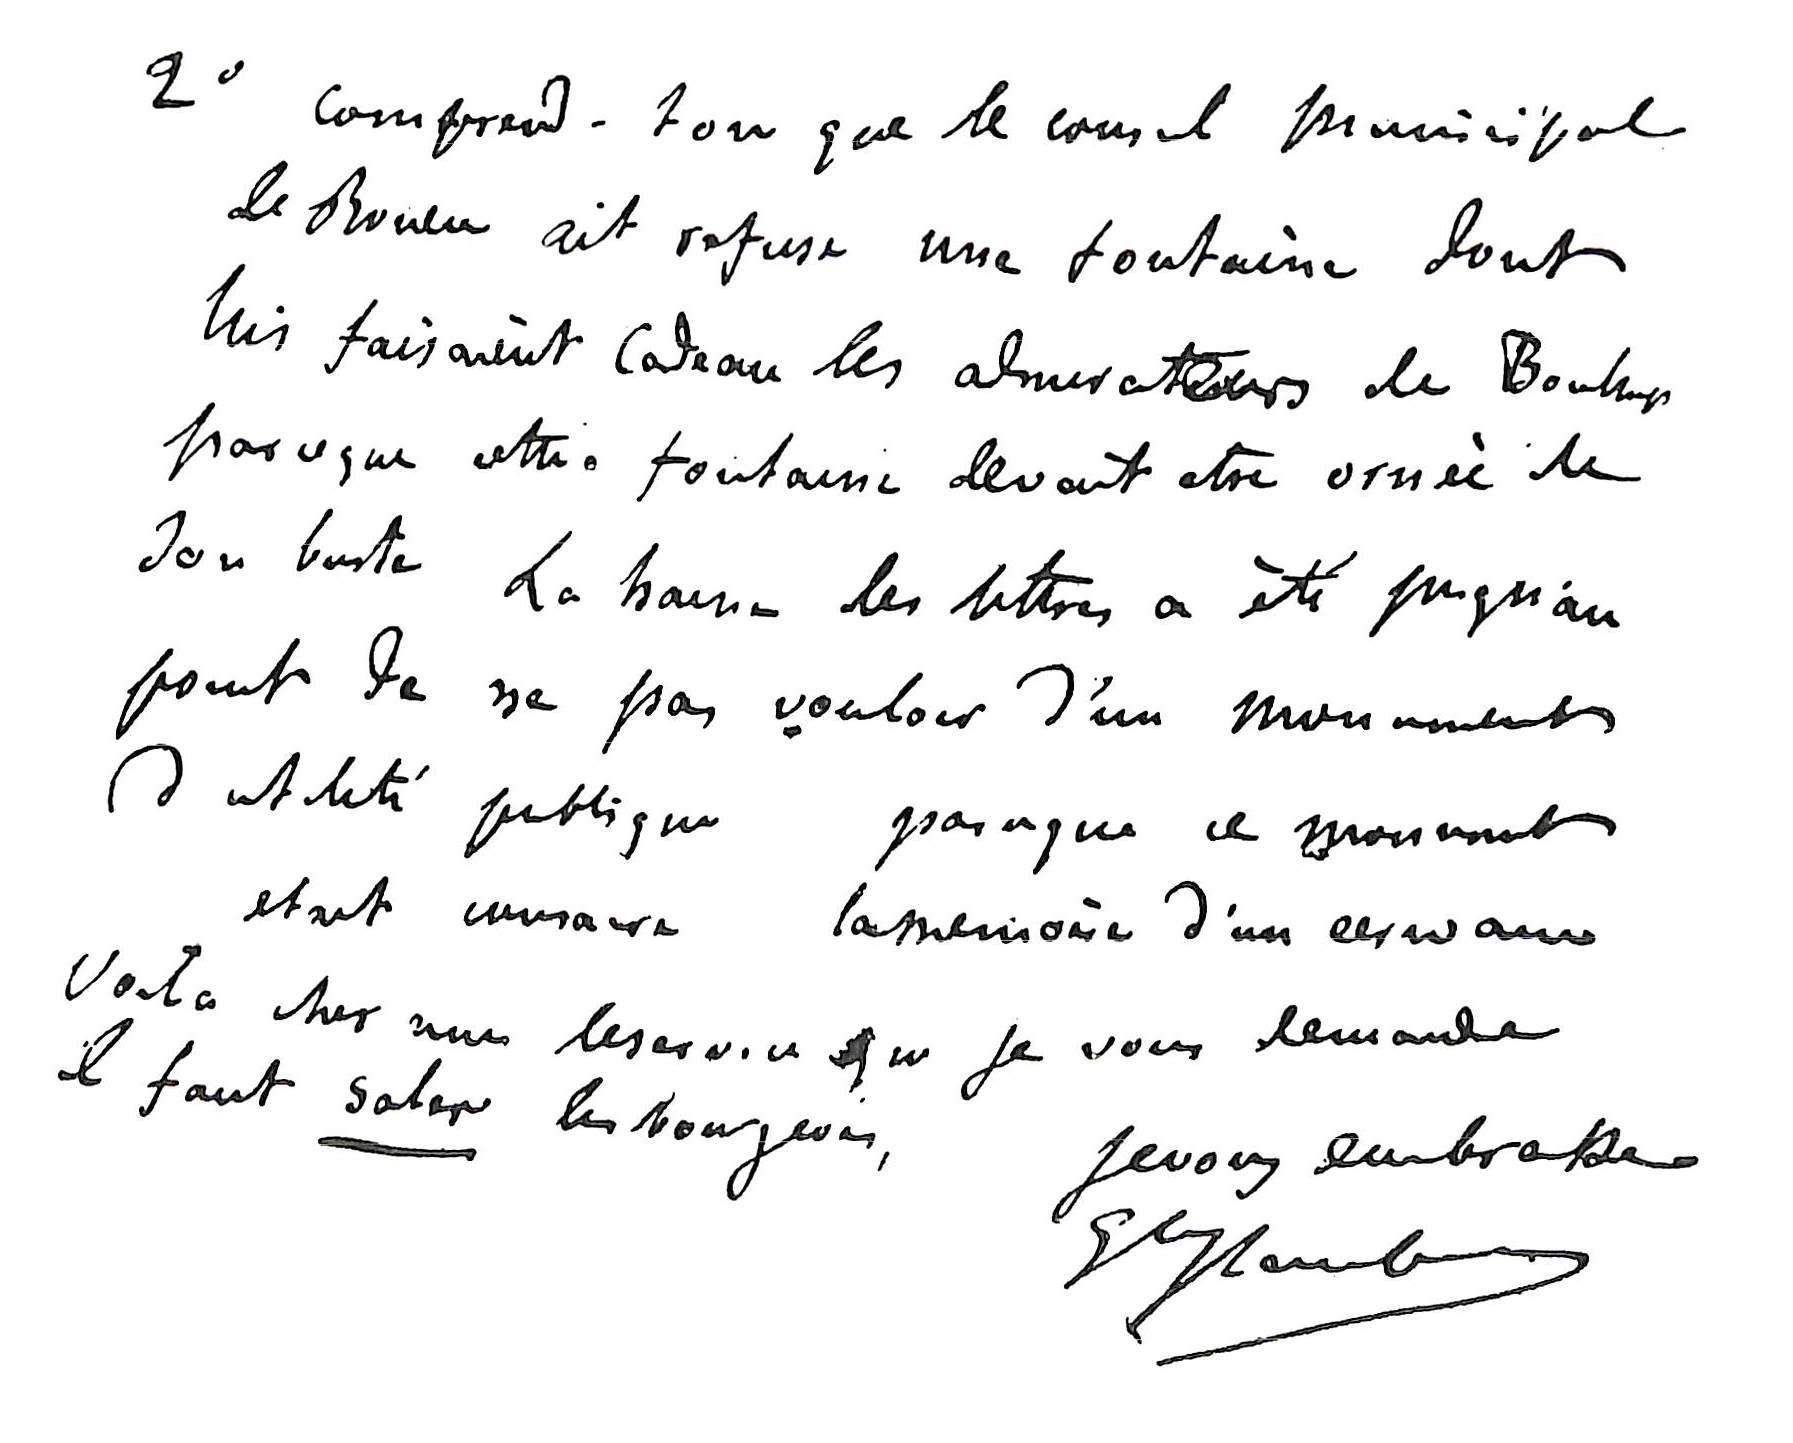 2° comprend-ton que le conseil municipal
de Rouen ait refuse une fontaine dont
lui faisaient cadeau les admirateurs de Bouilhet
parceque cette fontaine devait etre ornée de
son buste La haine des lettres a été jusqu'au
point de ne pas vouloir d'un monument
d utilité publique parceque ce monument
etait consacre la memoire d'un ecrivain
Voila cher ami le service que je vous demande
il faut saler les bourgeois,
je vous embrasse
G Flaubert